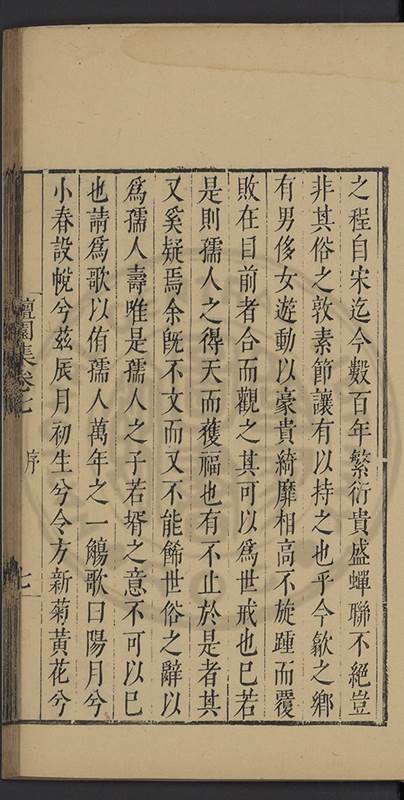 之程自宋迄今數百年繁衍貴盛蟬聯不絕豈
非其俗之敦素節讓有以持之也乎今歙之鄉
有男侈女遊動以豪貴綺靡相高不旋踵而覆
敗在目前者合而觀之其可以為世戒也巳若
是則孺人之得天而獲福也有不止於是者其
又奚疑焉余旣不文而又不能餙世俗之辭以
為孺人壽唯是孺人之子若壻之意不可以巳
也請為歌以侑孺人萬年之一觴歌曰陽月兮
小春設帨兮茲辰月初生兮令方新菊黃花兮
檀園集卷七 序 七